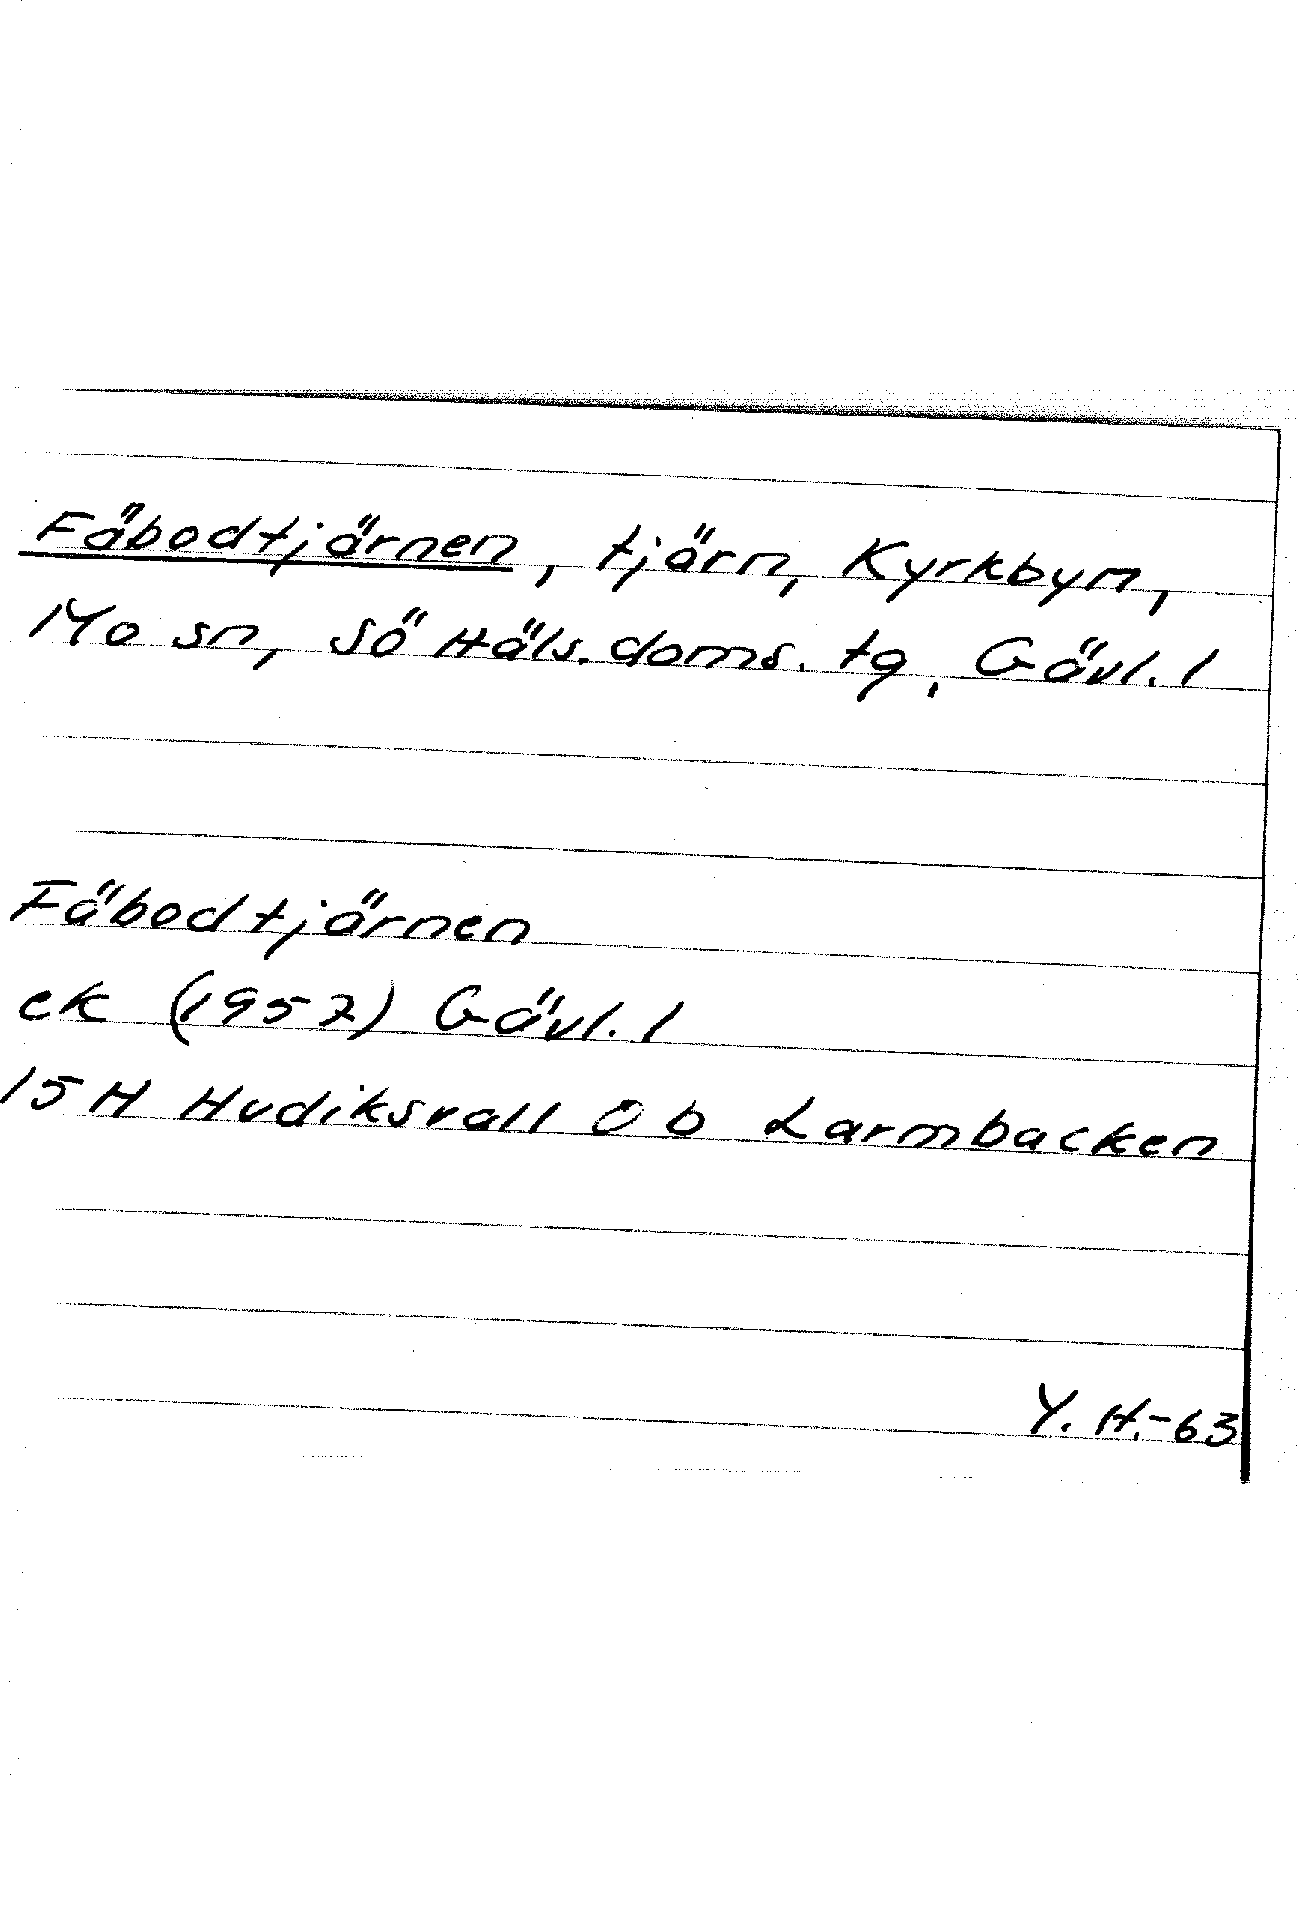 Fäbodtjärnen, tjärn, Kyrkbyn,
Mo sn, Sö Häls. doms. tg, Gävl. l
Fäbodtjärnen
ek (1957) Gävl. l
15H Hudiksvall 0 b Larmbacken
Y. H.-63